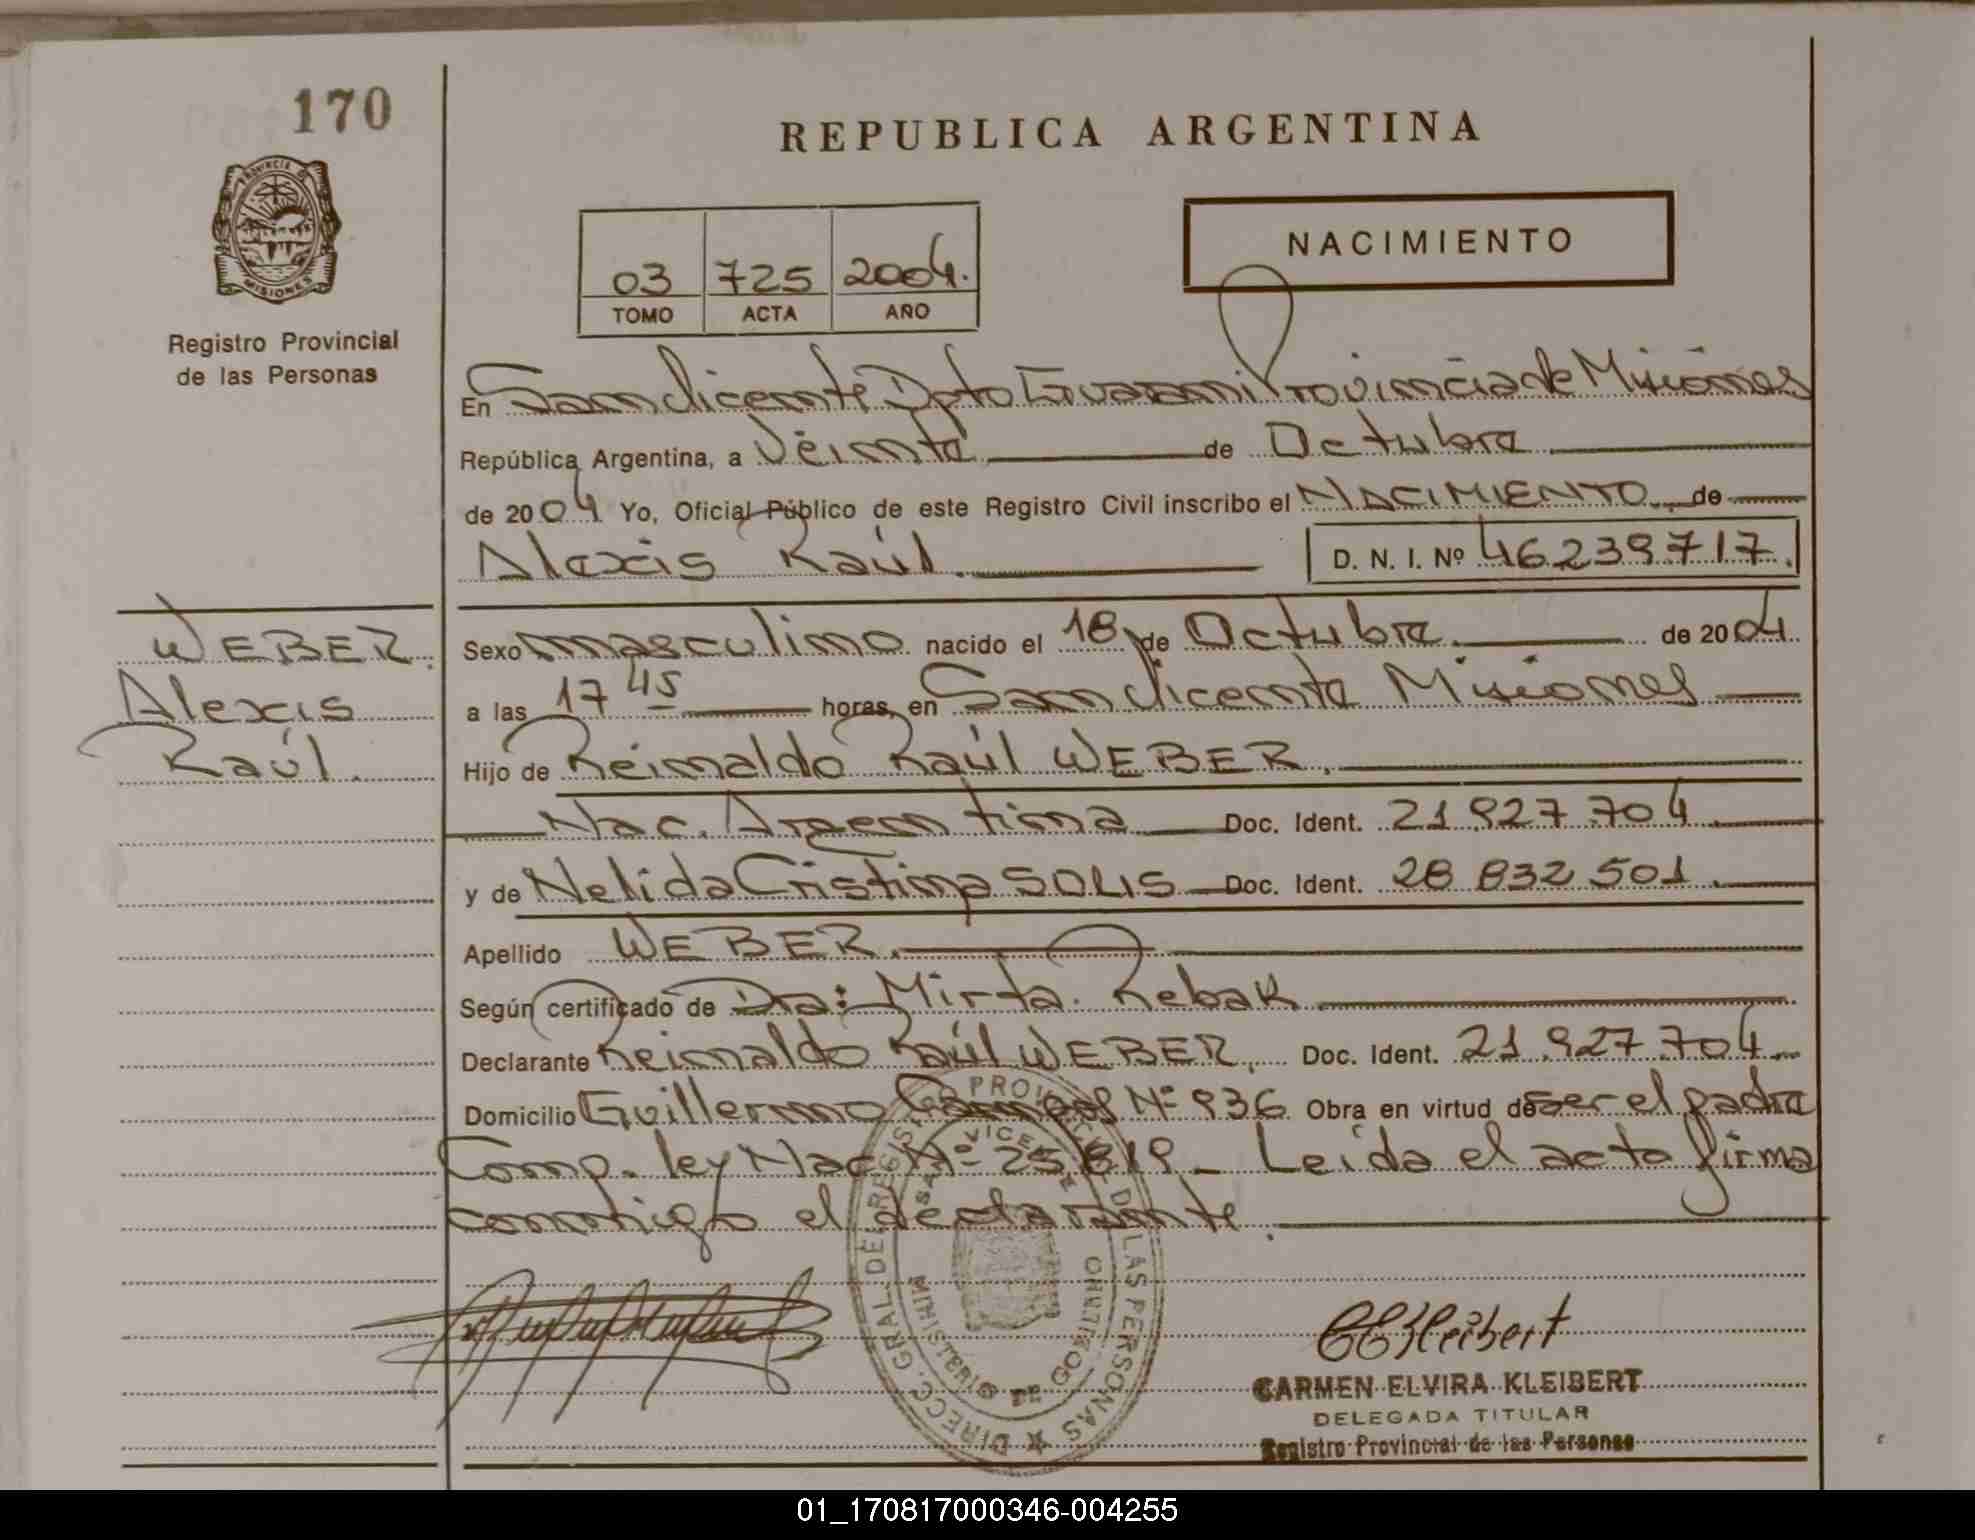 170
REPUBLICA ARGENTINA
PROVINCIA DE
MISIONES
Registro Provincial
de las Personas
NACIMIENTO
03 725 2004.
TOMO ACTA AÑO
En San Vicente Dpto Guarani Provincia de Misiones
República Argentina, a Veinte de Octubre
de 2004 Yo, Oficial Público de este Registro Civil inscribo el NACIMIENTO de
Alexis Raúl. D. N. I. Nº 46.239.717.
WEBER.
Alexis
Raúl.
Sexo masculino nacido el 18 de Octubre de 2004
a las 17 45 horas, en San Vicente Misiones
Hijo de Reinaldo Raúl WEBER.
Nac. Argentina Doc. Ident. 21.927.704
y de Nelida Cristina SOLIS Doc. Ident. 28 832 501.
Apellido WEBER.
Según certificado de Dra: Mirta. Rebak
Declarante Reinaldo Raúl WEBER, Doc. Ident. 21.927.704
Domicilio Guillermo Nº 936 Obra en virtud de ser el padre
Comp. ley Nac Nº 25.819 _ Leida el acta firma
conmigo el declarante.
DIRECC. GRAL. DEL REGISTRO PROVINCIAL DE LAS PERSONAS
SAN VICENTE
MINISTERIO DE GOBIERNO
CEKleibert
CARMEN ELVIRA KLEIBERT
DELEGADA TITULAR
Registro Provincial de las Personas
01_170817000346-004255